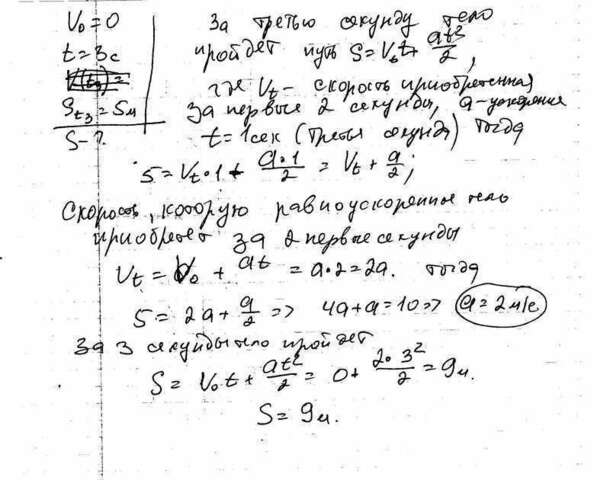 V₀ = 0
t = 3с
S_t₃ = 5м
S - ?
За третью секунду тело
пройдет путь S = V_t t + at²/2,
где V_t - скорость приобретенная
за первые 2 секунды, a - ускорение
t = 1сек (третья секунда) тогда
5 = V_t · 1 + a·1/2 = V_t + a/2;
Скорость, которую равноускоренно тело
приобретет за 2 первые секунды
V_t = V₀ + at = a·2 = 2a. тогда
5 = 2a + a/2 => 4a + a = 10 => a = 2 м/с
За 3 секунды тело пройдет
S = V₀t + at²/2 = 0 + 2·3²/2 = 9м.
S = 9м.